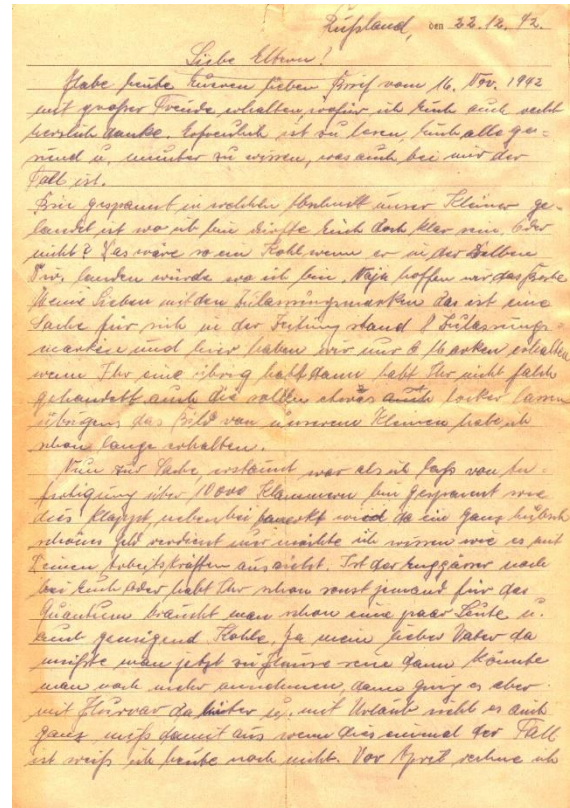 Rußland, den 22.12.42.
Liebe Eltern!
Habe heute Eueren lieben Brief vom 16. Nov. 1942
mit großer Freude erhalten, wofür ich Euch auch recht
herzlich danke. Erfreulich ist zu lesen, Euch alle ge-
sund u. munter zu wissen, was auch bei mir der
Fall ist.
Bin gespannt in welchen Abschnitt unser Kleiner ge-
landet ist wo ich bin dürfte Euch doch klar sein, oder
nicht? Das wäre so ein Kohl, wenn er in der selben
Div. landen würde wo ich bin. Naja hoffen wir das Beste
Meine Lieben mit den Zulassungsmarken das ist eine
Sache für sich in der Zeitung stand 8 Zulassungs-
marken und hier haben wir nur 6 Marken erhalten
wenn Ihr eine übrig habt dann habt Ihr nicht falsch
gehandelt, auch die sollen etwas locker lassen
übrigens das Bild von unserem Kleinen habe ich
schon lange erhalten.
Nun zur Sache erstaunt war als ich laß von An-
fertigung über 10000 Klammern bin gespannt wie
dies klappt, nebenbei bemerkt wird da ein ganz hübsch
schönes Geld verdient nur möchte ich wissen wie es mit
Deinen Arbeitskräften aussieht. Ist der noch
bei Euch oder habt Ihr schon sonst jemand für das
Quantum braucht man schon eine paar Leute u.
auch genügend Kohle. Ja mein lieber Vater da
müßte man jetzt zu Hause sein dann könnte
man noch mehr annehmen, dann ging es aber
mit da hinter u. mit Urlaub sieht es auch
ganz mieß damit aus wenn dies einmal der Fall
ist weiß ich heute noch nicht. Vor April rechne ich